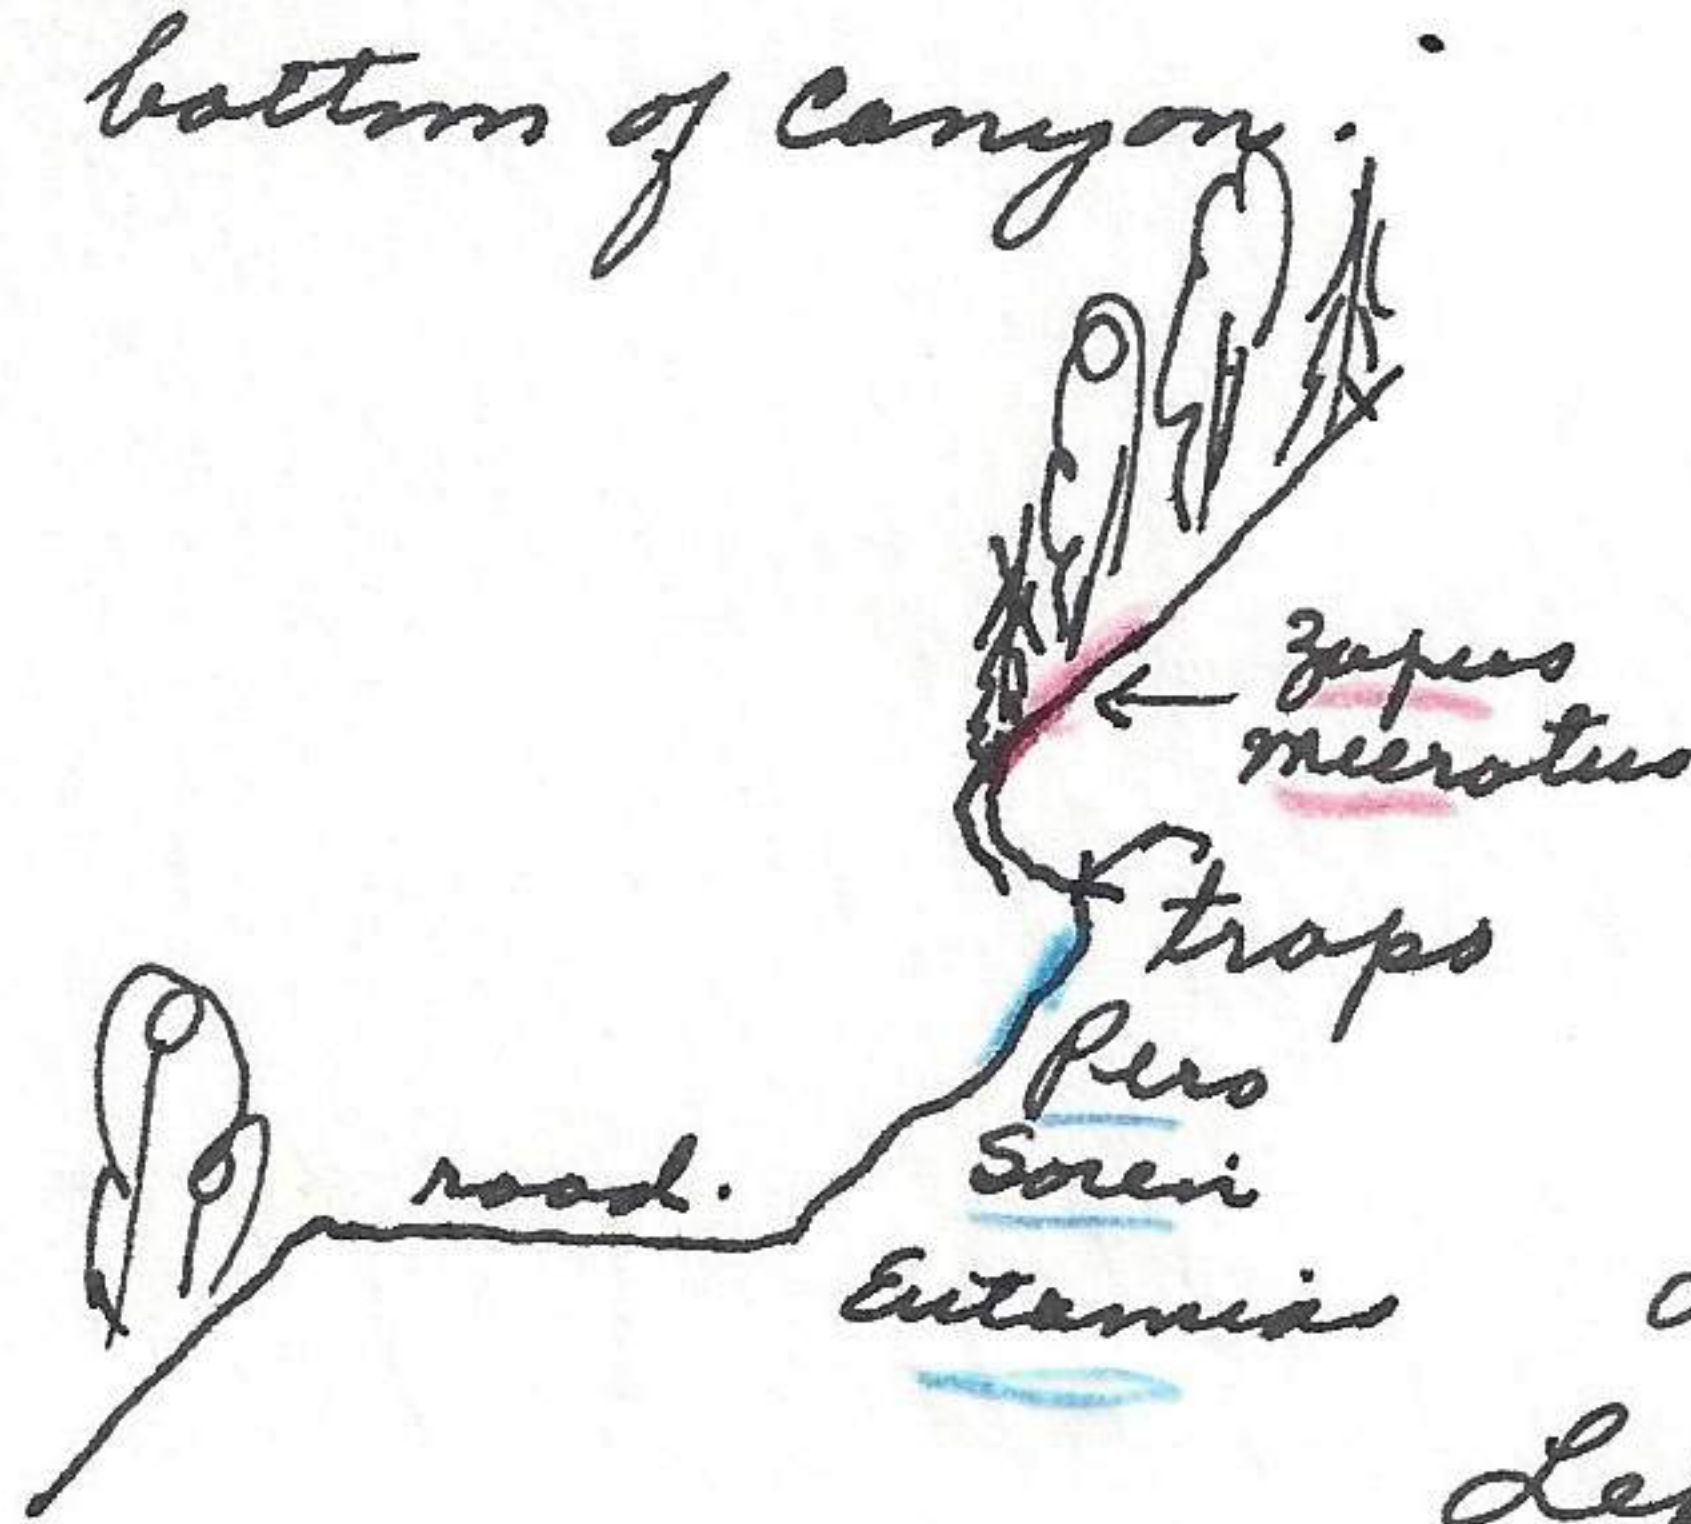 bottom of Canyon.
Zapus
Microtus
traps
Pero
Sorex
road.
Eutamias